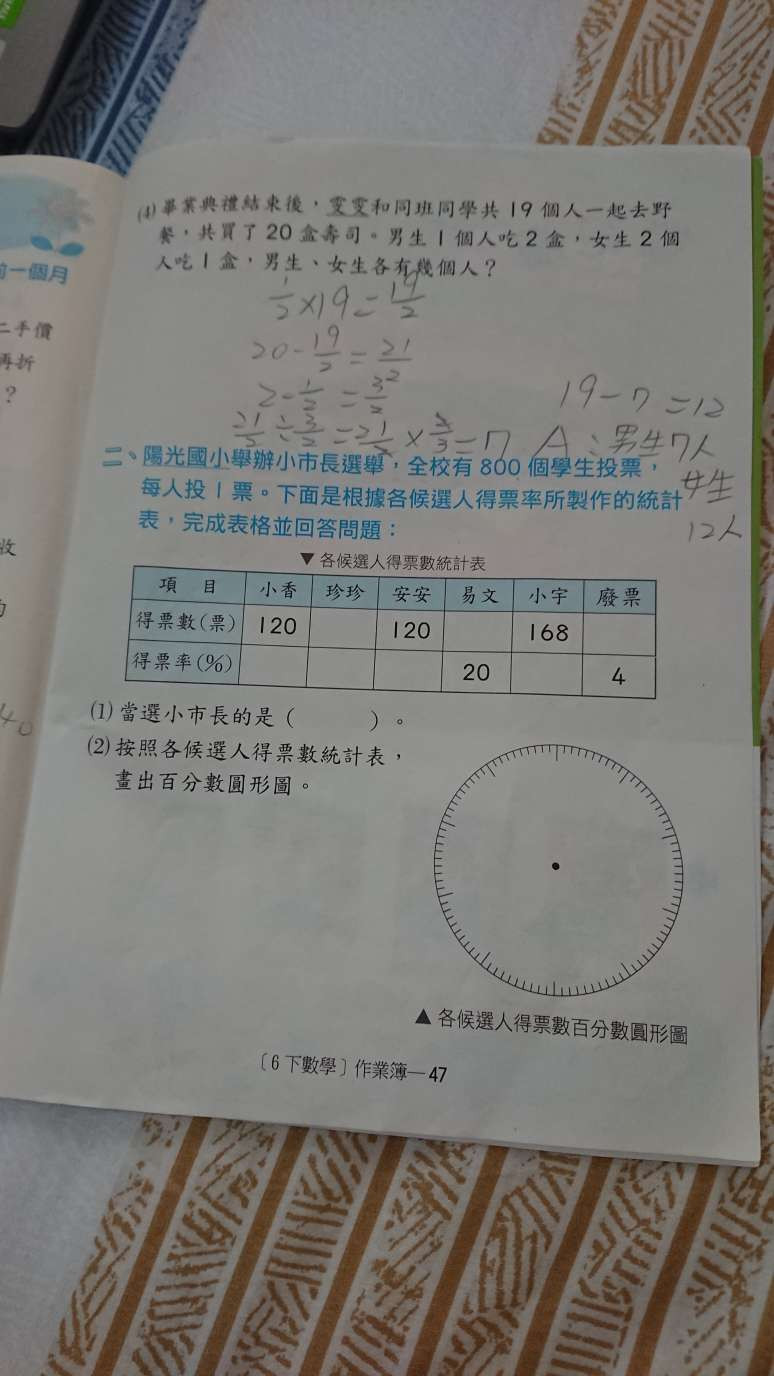 前一個月
二手價
再折
?
收
40
(4)畢業典禮結束後,雯雯和同班同學共19個人一起去野
餐,共買了20盒壽司。男生1個人吃2盒,女生2個
人吃1盒,男生、女生各有幾個人?
1/2×19=19/2
20-19/2=21/2
2-1/2=3/2
21/2÷3/2=21/2×2/3=7
19-7=12
A:男生7人
女生
12人
二、陽光國小舉辦小市長選舉,全校有800個學生投票,
每人投1票。下面是根據各候選人得票率所製作的統計
表,完成表格並回答問題:
▼各候選人得票數統計表
項 目 小香 珍珍 安安 易文 小宇 廢票
得票數(票) 120 120 168
得票率(%) 20 4
(1)當選小市長的是( )。
(2)按照各候選人得票數統計表,
畫出百分數圓形圖。
▲各候選人得票數百分數圓形圖
〔6下數學〕作業簿—47